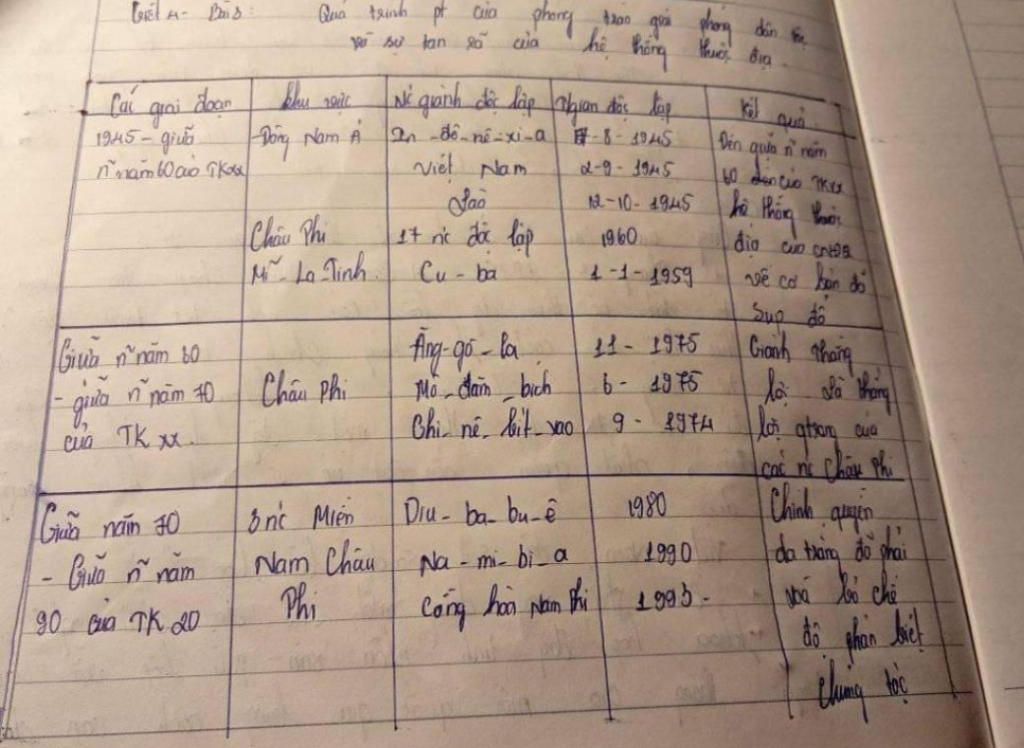 Tiết 4 - Bài 3: Quá trình pt của phong trào giải phóng dân tộc
và sự tan rã của hệ thống thuộc địa.
Các giai đoạn
Khu vực
Nc giành độc lập
Thgian độc lập
Kết quả
1945 - giữa
n~ năm 60 của TK xx
- Đông Nam Á
In - đô - nê - xi - a
17 - 8 - 1945
Việt Nam
2 - 9 - 1945
Lào
12 - 10 - 1945
Châu Phi
17 nc độc lập
1960
Mĩ - La - Tinh
Cu - ba
1 - 1 - 1959
Đến giữa n~ năm
60 của TK xx
hệ thống thuộc
địa của CNĐQ
về cơ bản đã
sụp đổ
Giữa n~ năm 60
- giữa n~ năm 70
của TK xx.
Châu Phi
Ăng - gô - la
11 - 1975
Mô - dăm - bích
6 - 1975
Ghi - nê - bit - xao
9 - 1974
Giành thắng
lợi. Là thắng
lợi qtrọng của
các nc Châu Phi
Giữa năm 70
- Giữa n~ năm
90 của TK 20
3 nc Miền
Nam Châu
Phi
Dim - ba - bu - ê
1980
Na - mi - bi - a
1990
Cộng hòa Nam Phi
1993.
Chính quyền
da trắng đã phải
xoá bỏ chế
độ phân biệt
chủng tộc